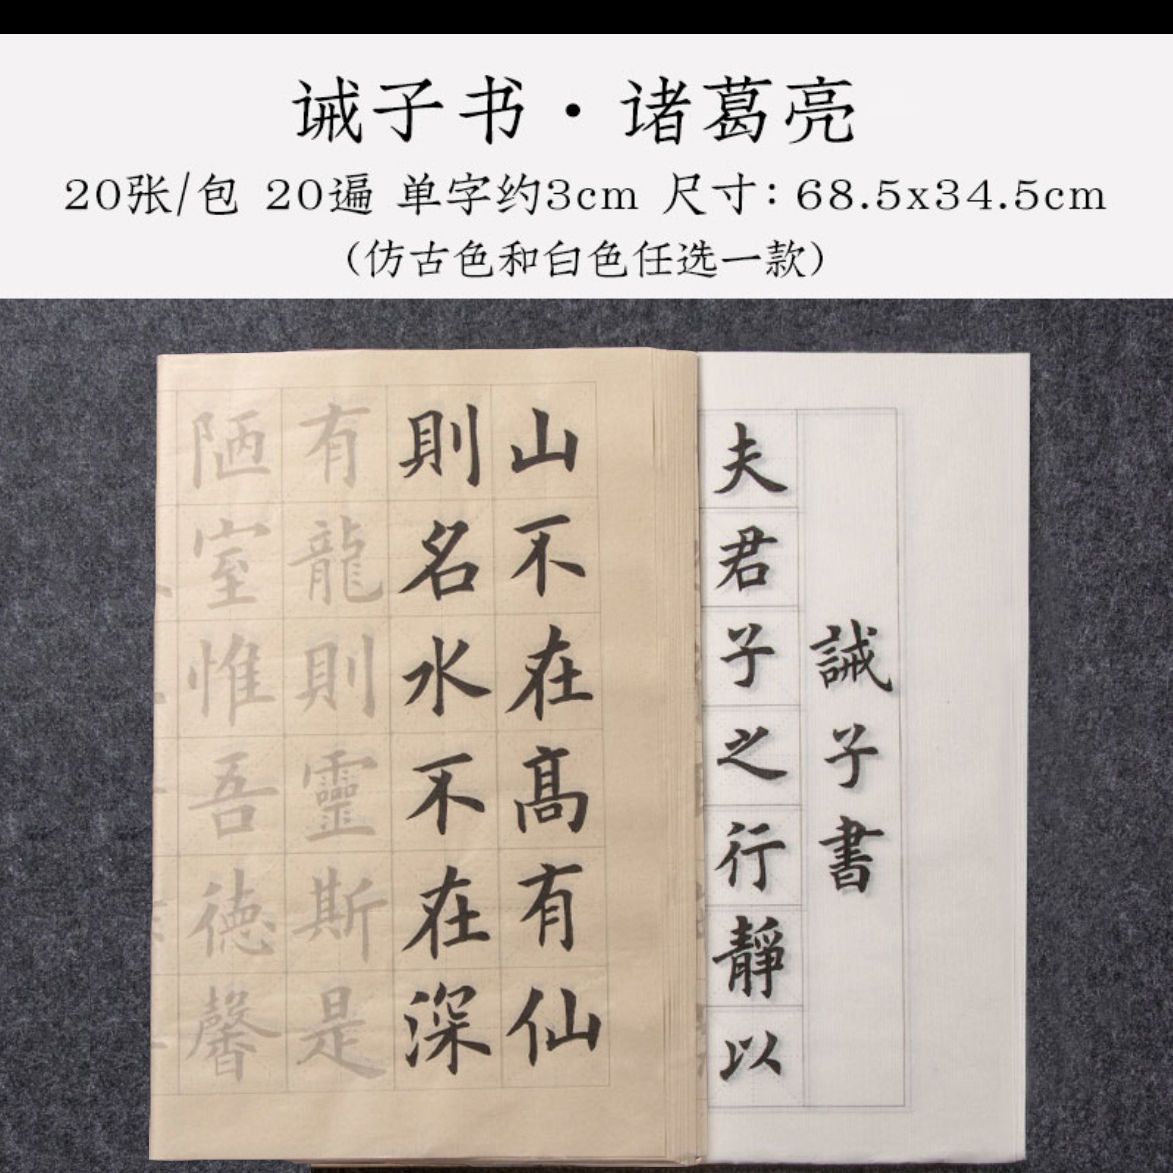 诫子书·诸葛亮
20张/包 20遍 单字约3cm 尺寸：68.5x34.5cm
（仿古色和白色任选一款）
誡子書
夫君子之行靜以
山不在高有仙
則名水不在深
有龍則靈斯是
陋室惟吾德馨